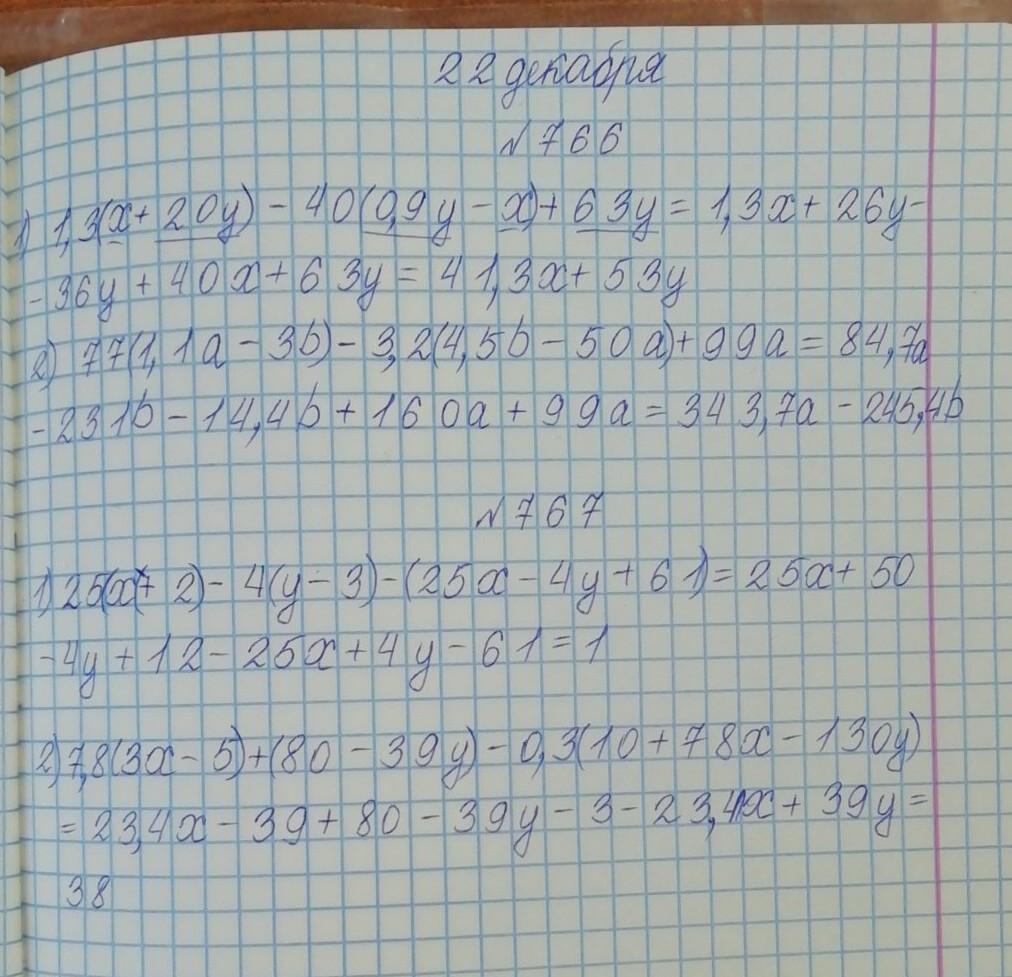 22 декабря
№766
1) 1,3(x + 20y) - 40(0,9y - x) + 63y = 1,3x + 26y -
- 36y + 40x + 63y = 41,3x + 53y
2) 77(1,1a - 3b) - 3,2(4,5b - 50a) + 99a = 84,7a
- 231b - 14,4b + 160a + 99a = 343,7a - 245,4b
№767
1) 25(x + 2) - 4(y - 3) - (25x - 4y + 61) = 25x + 50
- 4y + 12 - 25x + 4y - 61 = 1
2) 7,8(3x - 5) + (80 - 39y) - 0,3(10 + 78x - 130y)
= 23,4x - 39 + 80 - 39y - 3 - 23,4x + 39y =
38